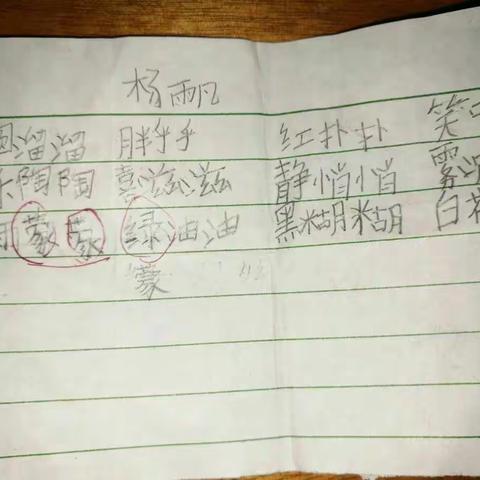 杨雨凡
圆溜溜 胖乎乎 红扑扑 笑
乐陶陶 喜滋滋 静悄悄 雾
雨蒙蒙 绿油油 黑糊糊 白
蒙